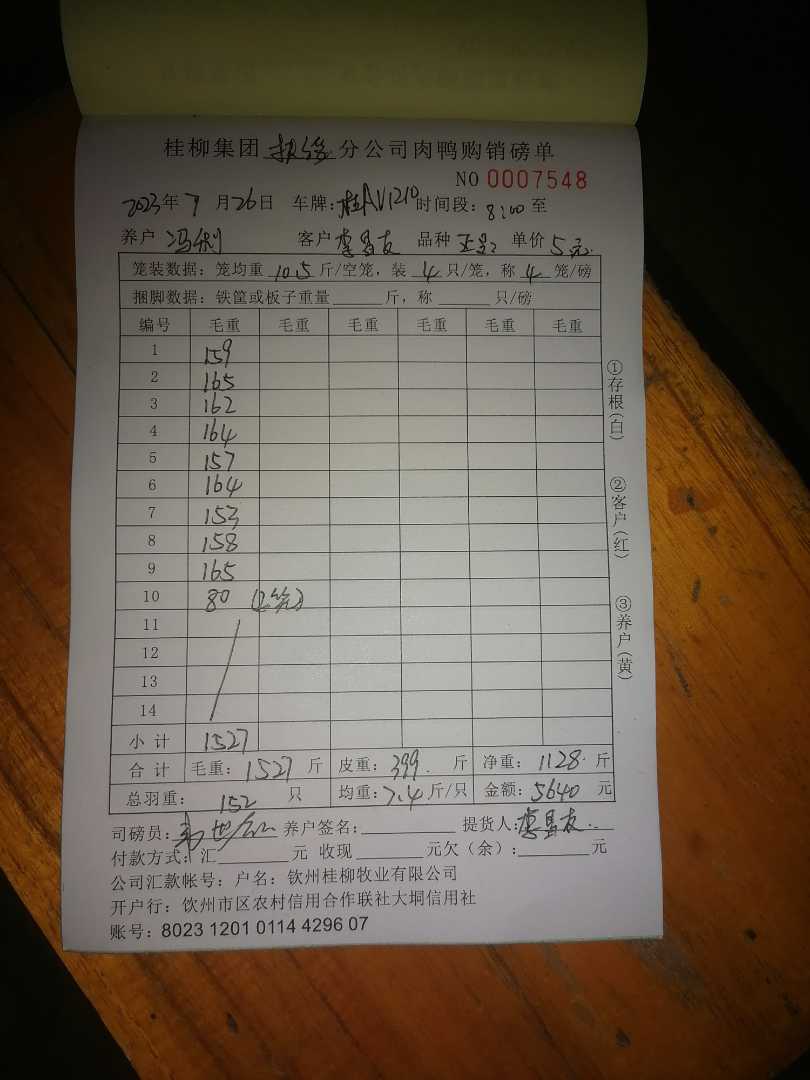 桂柳集团 分公司肉鸭购销磅单
NO 0007548
2023年7月26日 车牌:桂AV1210 时间段:8:00至
养户 冯 客户 李昌友 品种 单价 5元
笼装数据:笼均重 10.5 斤/空笼,装 4 只/笼,称 4 笼/磅
捆脚数据:铁筐或板子重量 斤,称 只/磅
编号 毛重 毛重 毛重 毛重 毛重 毛重
1 159
2 165
3 162
4 164
5 157
6 164
7 153
8 158
9 165
10 80 (2笼)
11
12
13
14
小计 1527
合计 毛重:1527 斤 皮重:399 斤 净重:1128 斤
总羽重: 152 只 均重:7.4 斤/只 金额:5640 元
司磅员: 养户签名: 提货人:李昌友
付款方式:汇 元 收现 元欠(余): 元
公司汇款帐号:户名:钦州桂柳牧业有限公司
开户行:钦州市区农村信用合作联社大垌信用社
账号:8023 1201 0114 4296 07
①存根(白)
②客户(红)
③养户(黄)